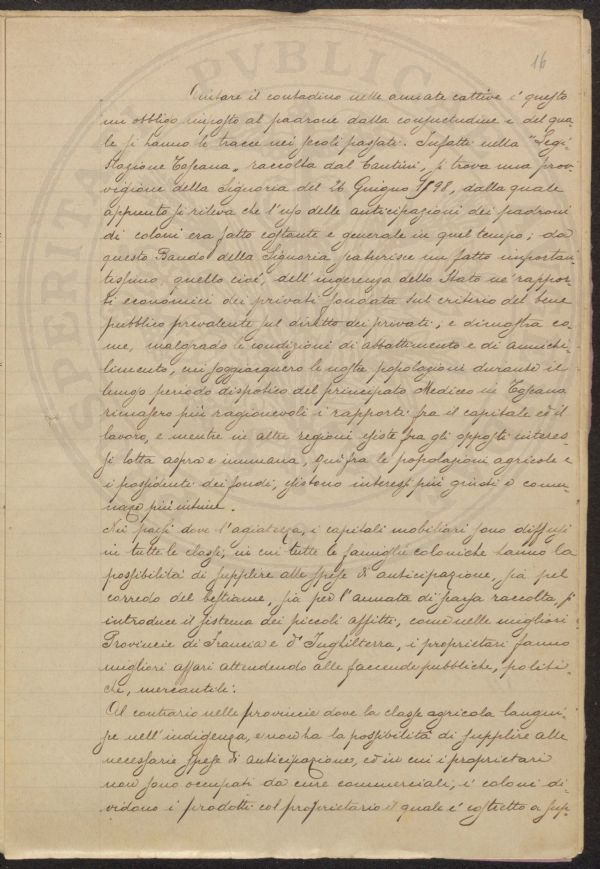 16
Aiutare il contadino nelle annate cattive è questo
un obbligo imposto al padrone dalla consuetudine e del qua-
le si hanno le tracce nei secoli passati. Infatti nella "Legi-
slazione Toscana" raccolta dal Cantini, si trova una prov-
vigione della Signoria del 26 Giugno 1598, dalla quale
appunto si rileva che l'uso delle anticipazioni dei padroni
di coloni era fatto costante e generale in quel tempo; da
questo Bando della Signoria faturisce un fatto importan-
tissimo quello cioè, dell'ingerenza dello Stato ne' rappor-
ti economici dei privati fondata sul criterio del bene
pubblico prevalente sul diretto dei privati, e dimostra co-
me, malgrado le condizioni di abbattimento e di annichi-
limento, cui soggiacquero le nostre popolazioni durante il
lungo periodo dispotico del principato Mediceo in Toscana
rimasero più ragionevoli i rapporti fra il capitale ed il
lavoro, e mentre in altre regioni esiste fra gli opposti interes-
si lotta aspra e immana, qui fra le popolazioni agricole e
i possidenti dei fondi, esistono interessi più giusti e comu-
nanze più intime.
Nei paesi dove l'agiatezza, i capitali mobiliari sono diffusi
in tutte le classi, in cui tutte le famiglie coloniche hanno la
possibilità di supplire alle spese di anticipazione, sia pel
corredo del bestiame, sia per l'annata di scarsa raccolta, s'
introduce il sistema dei piccoli affitti, come nelle migliori
Provincie di Francia e d'Inghilterra, i proprietari fanno
migliori affari attendendo alle faccende pubbliche, politi-
che, mercantili.
Al contrario nelle provincie dove la classe agricola langui-
sce nell'indigenza, e non ha la possibilità di supplire alle
necessarie spese di anticipazione, ed in cui i proprietari
non sono occupati da cure commerciali, i coloni di-
vidono i prodotti col proprietario il quale è costretto a sup-